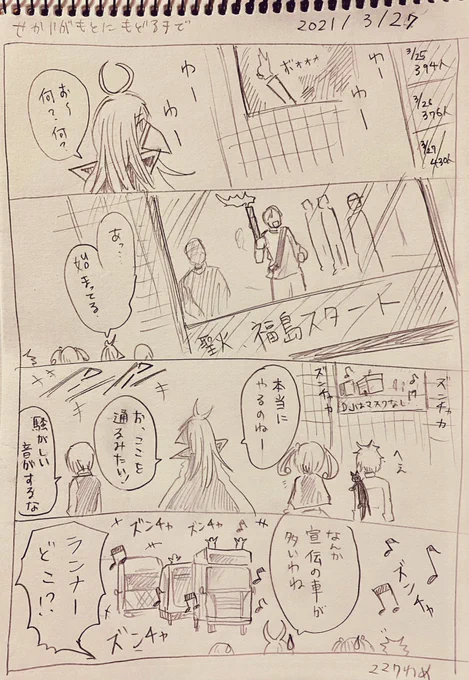 せかいがもとにもどるまで
2021/3/27
3/25
394人
3/26
376人
3/27
430人
ボォォォ
わー
わー
お〜何?
何?
聖火 福島スタート
あっ…
始まってる
ズンチャカ
ズンチャカ
DJはマスクなし!
へぇ
本当に
やるのねー
お、ここを
通るみたい!
騒がしい
音がするな
なんか
宣伝の車が
多いわね
ズンチャ
ズンチャ
ズンチャ
ズンチャ
ランナー
どこ!?
227日め